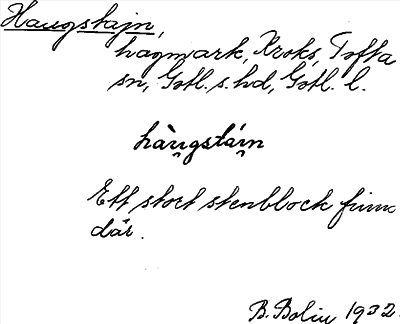 Haugstajn,
hagmark, Kroks, Tofta
sn, Gotl. s. hd, Gotl. l.
hàu̯gstái̯n
Ett stort stenblock finns
där.
B. Bolin 1932.